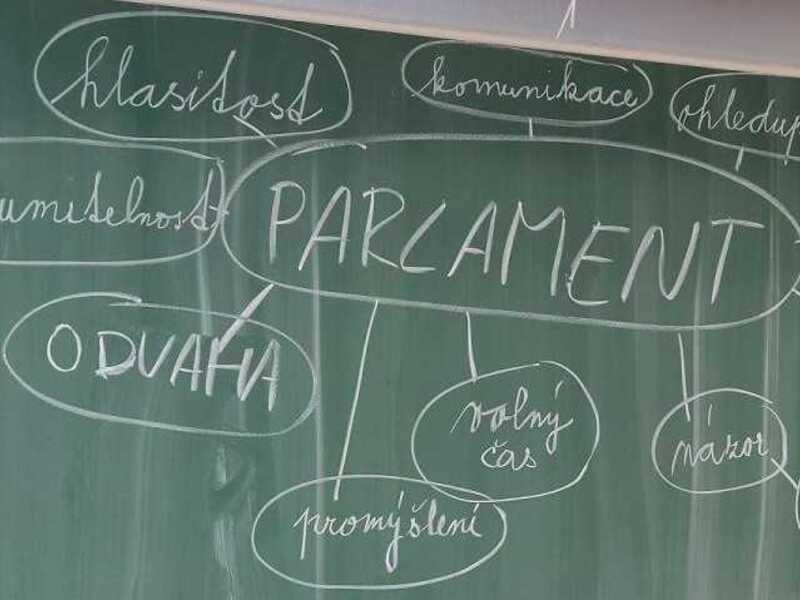 hlasitost
komunikace
ohledup
umitelnost
PARLAMENT
ODVAHA
volný
čas
názor
promýšlení